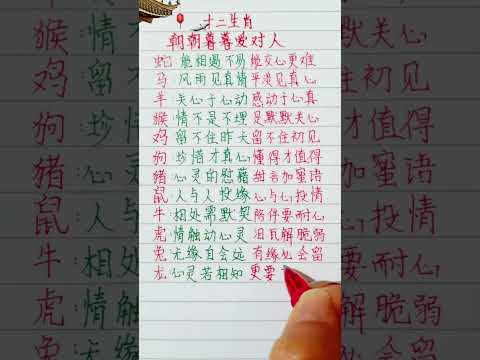 十二生肖
朝朝暮暮爱对人
蛇:能相遇不易 能交心更难
马:风雨见真情 平淡见真心
羊:关心于心动 感动于心真
猴:情不是不理 是默默关心
鸡:留不住昨天 留不住初见
狗:珍惜才真心 懂得才值得
猪:心灵的慰藉 甜言加蜜语
鼠:人与人投缘 心与心投情
牛:相处需默契 陪伴要耐心
虎:情触动心灵 泪瓦解脆弱
兔:无缘自会远 有缘处会留
龙:心灵若相知 更要